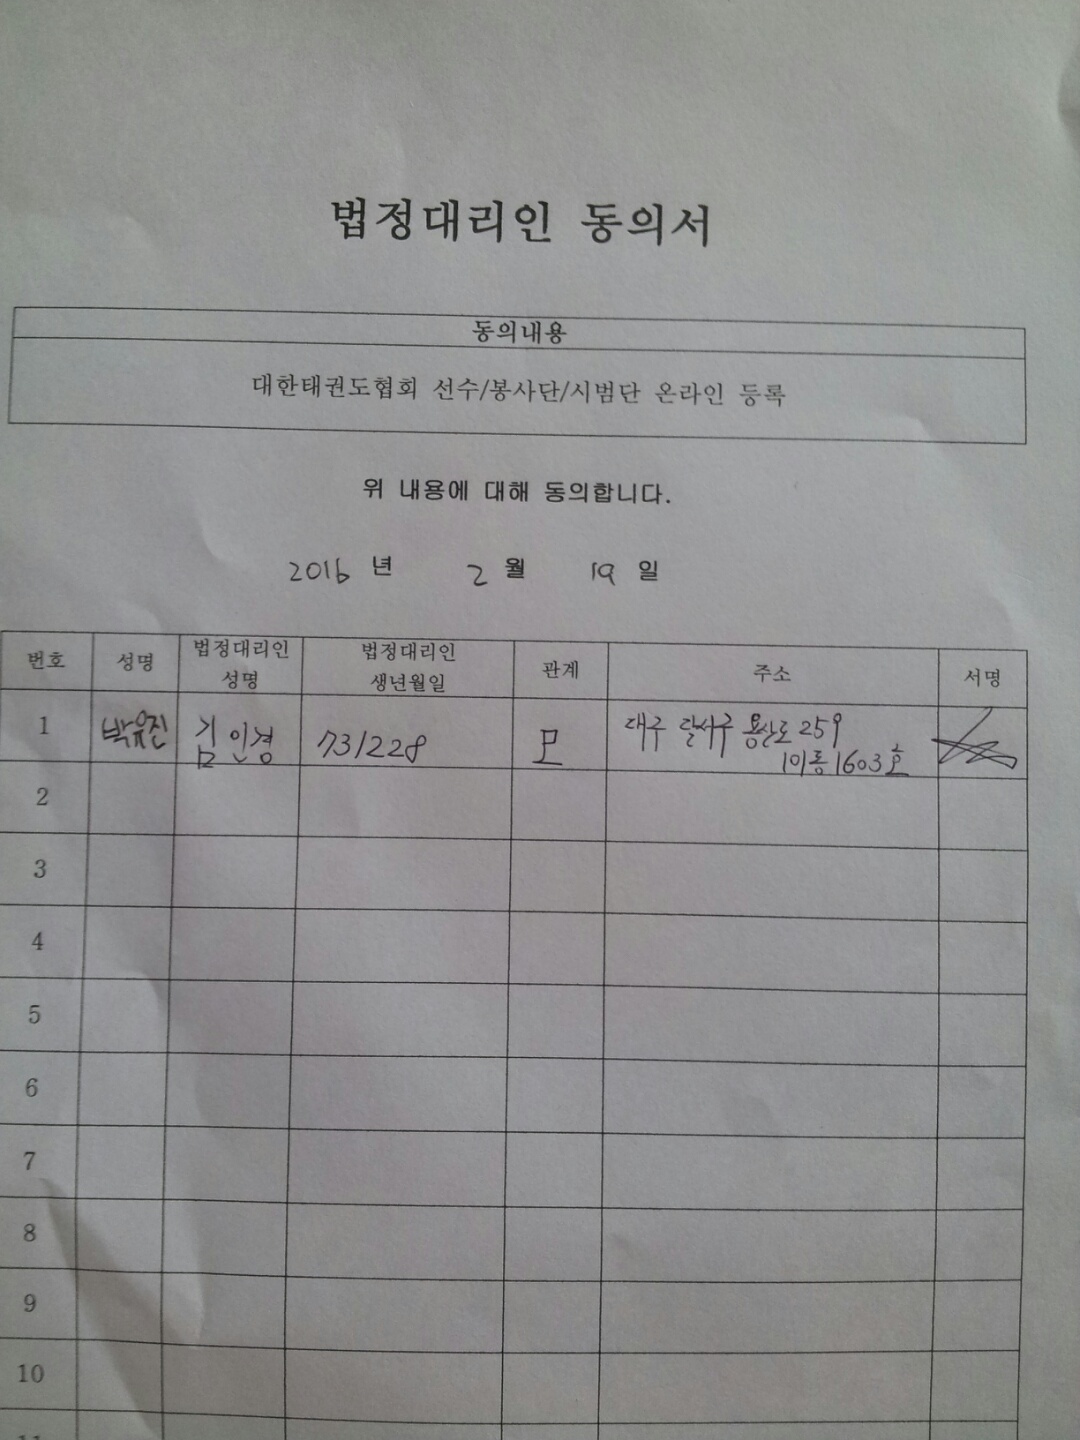 법정대리인 동의서
동의내용
대한태권도협회 선수/봉사단/시범단 온라인 등록
위 내용에 대해 동의합니다.
2016 년 2 월 19 일
번호 성명 법정대리인 성명 법정대리인 생년월일 관계 주소 서명
1 박유진 김인경 731228 모 대구 달서구 용산로 259
101동 1603호
2
3
4
5
6
7
8
9
10
11